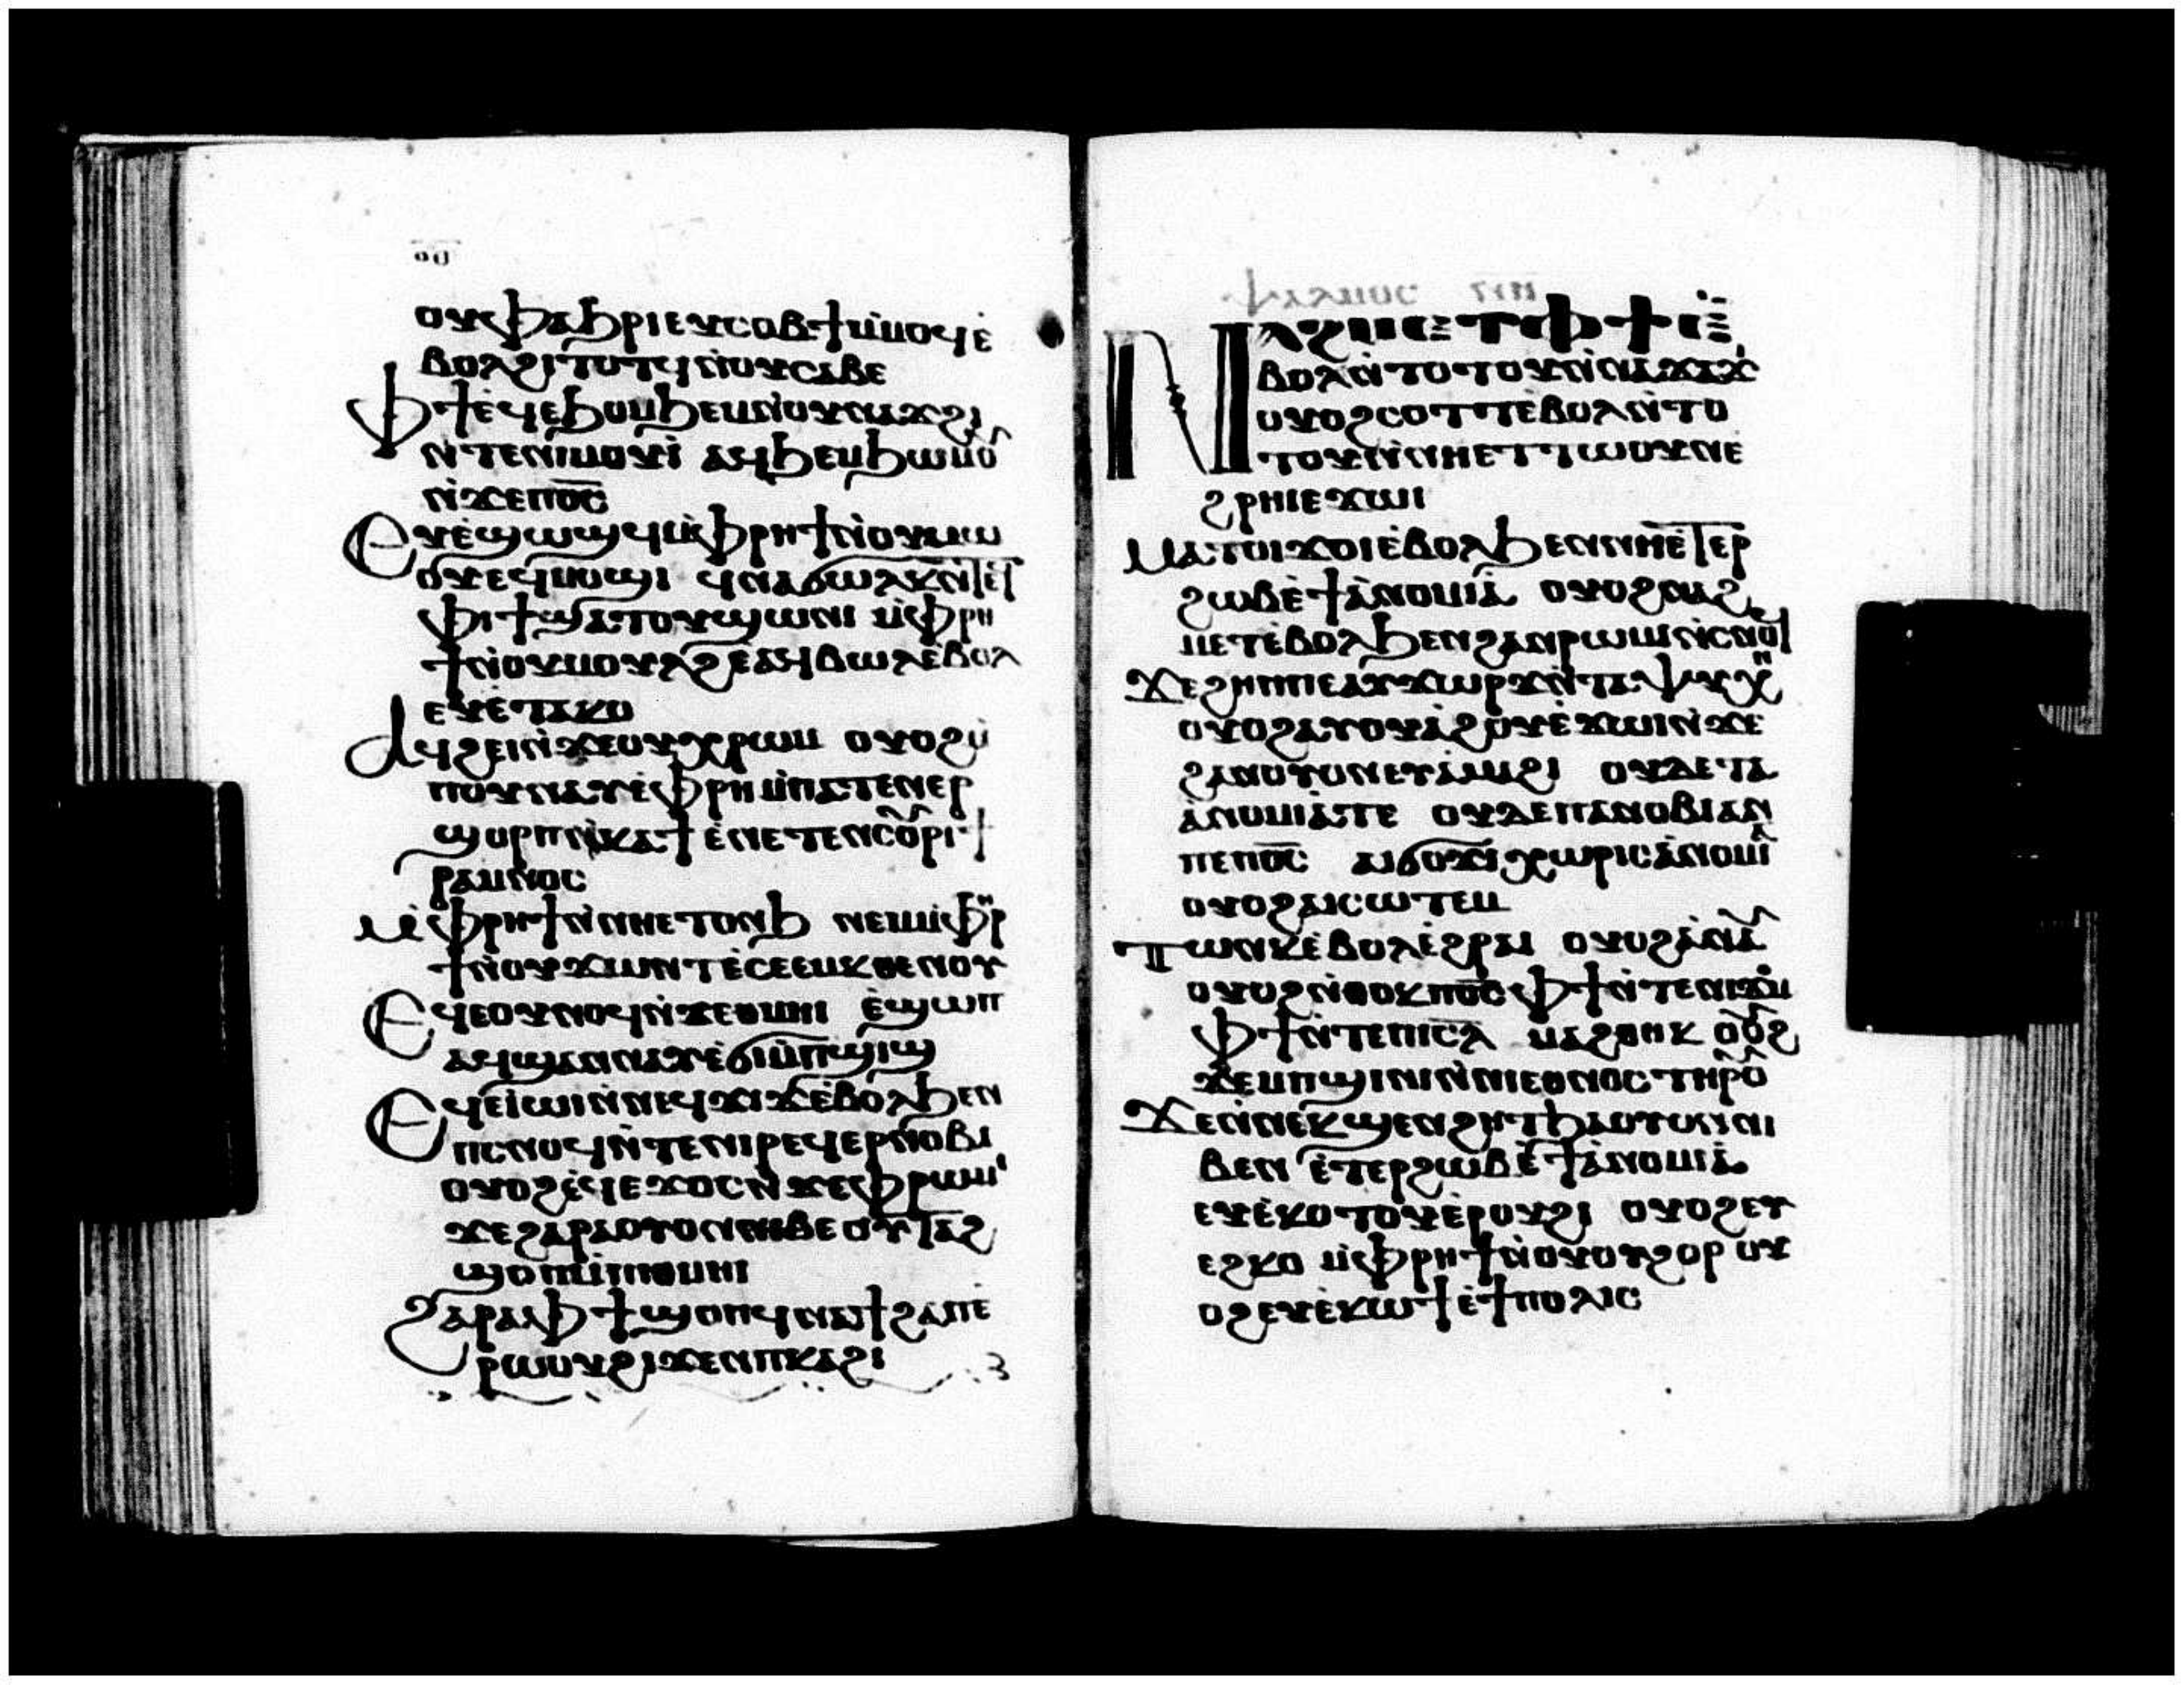 ⲟⲩⲫⲁϧⲣⲓ ⲉⲩⲥⲟⲃϯ ⲙ̀ⲙⲟϥ ⲉ̀
ⲃⲟⲗϩⲓⲧⲟⲧϥ ⲛ̀ⲟⲩⲥⲁⲃⲉ
ⲫϯ ⲉ̀ϥⲉϧⲟⲙϧⲉⲙ ⲛ̀ⲟⲩⲛⲁϫϩⲓ
ⲛ̀ⲧⲉⲛⲓⲙⲟⲩⲓ̀ ⲁϥϧⲉⲙϧⲱⲙⲟ̂ⲩ
ⲛ̀ϫⲉⲡⲟ̅ⲥ̅
ⲉⲩⲉ̀ϣⲱϣϥ ⲙ̀ⲫⲣⲏϯ ⲛ̀ⲟⲩⲙⲱ
ⲟⲩ ⲉϥⲙⲟϣⲓ ϥⲛⲁϭⲱⲗⲕ ⲛ̀ⲧⲉϥ
ⲫⲓϯ ϣⲁⲧⲟⲩϣⲱⲛⲓ ⲙ̀ⲫⲣⲏ
ϯ ⲛ̀ⲟⲩⲙⲟⲩⲗϩ ⲉⲁϥⲃⲱⲗ ⲉⲃⲟⲗ
ⲉⲩⲉ̀ⲧⲁⲕⲟ
ⲁϥϩⲉⲓ ⲛ̀ϫⲉⲟⲩⲭⲣⲱⲙ ⲟⲩⲟϩ ⲙ̀
ⲡⲟⲩⲛⲁⲩ ⲉ̀ⲫⲣⲏ ⲙ̀ⲡⲁⲧⲉⲛⲉⲣ
ϣⲟⲣⲡ ⲛ̀ⲕⲁϯ ⲉ̀ⲛⲉⲧⲉⲛⲥⲟ̂ⲩⲣⲓ ϯ
ⲣⲁⲙⲛⲟⲥ
ⲙ̀ⲫⲣⲏϯ ⲛ̀ⲛⲏⲉⲧⲟⲛϧ ⲛⲉⲙ ⲙ̀ⲫⲣⲏ
ϯ ⲛ̀ⲟⲩϫⲱⲛⲧ ⲉ̀ⲥⲉⲉⲙⲕⲑⲏⲛⲟⲩ
ⲉϥⲉⲟⲩⲛⲟϥ ⲛ̀ϫⲉⲑⲙⲏⲓ ⲉ̀ϣⲱⲡ
ⲁϥϣⲁⲛⲛⲁⲩ ⲉ̀ϭⲓⲙ̀ⲡϣⲓϣ
ⲉϥⲉⲓⲱⲓ ⲛ̀ⲛⲉϥϫⲓϫ ⲉ̀ⲃⲟⲗϧⲉⲛ
ⲡⲥⲛⲟϥ ⲛ̀ⲧⲉⲛⲓⲣⲉϥⲉⲣⲛⲟⲃⲓ
ⲟⲩⲟϩ ⲉ̀ϥⲉϫⲟⲥ ⲛ̀ϫⲉⲫⲣⲱⲙⲓ
ϫⲉϩⲁⲣⲁⲟⲩⲟⲛⲛⲓⲃⲉ ⲟⲩⲧⲁϩ
ϣⲟⲡ ⲙ̀ⲡⲓⲑⲙⲏⲓ
ϩⲁⲣⲁ ⲫϯ ϣⲟⲡ ϥⲛⲁϯϩⲁⲡ ⲉ̀
ⲣⲱⲟⲩ ϩⲓϫⲉⲛⲡⲕⲁϩⲓ
ⲯⲁⲗⲙⲟⲥ ⲛⲏ
ⲛⲁϩⲙⲉⲧ ⲫϯ ⲉ̀
ⲃⲟⲗ ⲛ̀ⲧⲟⲧⲟⲩ ⲛ̀ⲛⲁϫⲁϫⲓ
ⲟⲩⲟϩ ⲥⲟⲧⲧ ⲉ̀ⲃⲟⲗ ⲛ̀ⲧⲟ
ⲧⲟⲩ ⲛ̀ⲛⲏⲉⲧⲧⲱⲟⲩⲛ ⲉ̀
ϩⲣⲏⲓ ⲉϫⲱⲓ
ⲙⲁⲧⲟⲩϫⲟⲓ ⲉ̀ⲃⲟⲗϧⲉⲛ ⲛⲏⲉ̀ⲧⲉⲣ
ϩⲱⲃ ⲉ̀ϯⲁ̀ⲛⲟⲙⲓⲁ̀ ⲟⲩⲟϩ ⲛⲁϩ
ⲙⲉⲧ ⲉ̀ⲃⲟⲗϧⲉⲛ ϩⲁⲛⲣⲱⲙⲓ ⲛ̀ⲥⲛⲟϥ
ϫⲉϩⲏⲡⲡⲉ ⲁⲩϫⲱⲣϫ ⲛ̀ⲧⲁⲯⲩⲭⲏ
ⲟⲩⲟϩ ⲁⲩⲟⲩⲁ̀ϩⲟⲩ ⲉ̀ϫⲱⲓ ⲛ̀ϫⲉ
ϩⲁⲛⲟⲩⲟⲛ ⲉⲩⲁ̀ⲙⲁϩⲓ ⲟⲩⲇⲉ ⲧⲁ
ⲁ̀ⲛⲟⲙⲓⲁ̀ ⲧⲉ ⲟⲩⲇⲉ ⲡⲁⲛⲟⲃⲓ ⲁⲛ
ⲡⲉ ⲡⲟ̅ⲥ̅ ⲁⲓϭⲟϫⲓ ⲭⲱⲣⲓⲥ ⲁ̀ⲛⲟⲙⲓⲁ
ⲟⲩⲟϩ ⲁⲓⲥⲱⲧⲉⲛ
ⲧⲱⲛⲕ ⲉ̀ⲃⲟⲗ ⲉ̀ϩⲣⲁⲓ ⲟⲩⲟϩ ⲁ̀ⲛⲁⲩ
ⲟⲩⲟϩ ⲛ̀ⲑⲟⲕ ⲡⲟ̅ⲥ̅ ⲫϯ ⲛ̀ⲧⲉⲛⲓϫⲟⲙ
ⲫϯ ⲛ̀ⲧⲉⲡⲓⲥ̅ⲗ̅ ⲙⲁϩⲑⲏⲕ ⲟⲩⲟϩ
ϫⲉⲙⲡϣⲓⲛⲓ ⲛ̀ⲛⲓⲉⲑⲛⲟⲥ ⲧⲏⲣⲟⲩ
ϫⲉⲛ̀ⲛⲉⲕϣⲉⲛϩⲏⲧ ϧⲁⲟⲩⲟⲛ ⲛⲓ
ⲃⲉⲛ ⲉ̀ⲧⲉⲣϩⲱⲃ ⲉ̀ϯⲁ̀ⲛⲟⲙⲓⲁ
ⲉⲩⲉ̀ⲕⲟⲧⲟⲩ ⲉ̀ⲣⲟⲩϩⲓ ⲟⲩⲟϩ ⲉⲩ
ⲉϩⲕⲟ ⲙ̀ⲫⲣⲏϯ ⲛ̀ⲟⲩⲟⲩϩⲟⲣ ⲟⲩ
ⲟϩ ⲉⲩⲉ̀ⲕⲱϯ ⲉ̀ϯⲡⲟⲗⲓⲥ